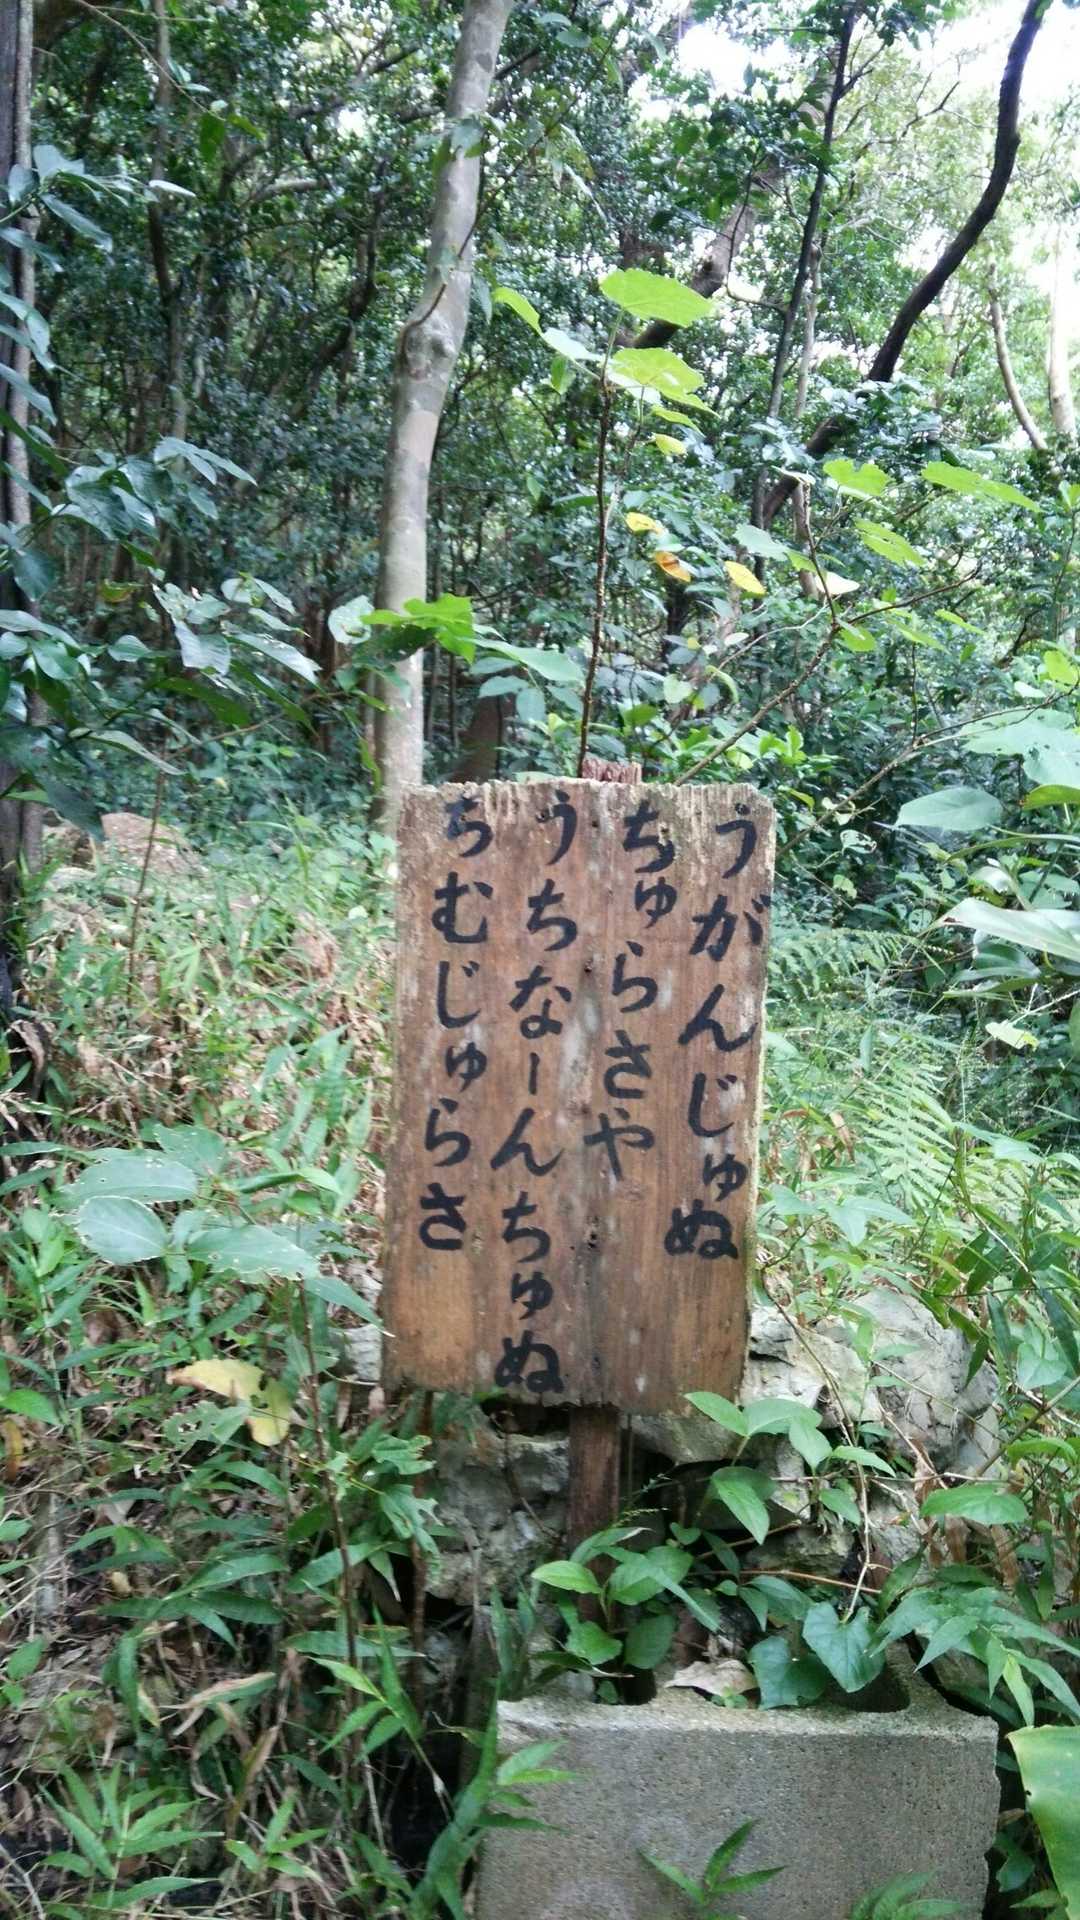 うがんじゅぬ
ちゅらさや
うちなーんちゅぬ
ちむじゅらさ